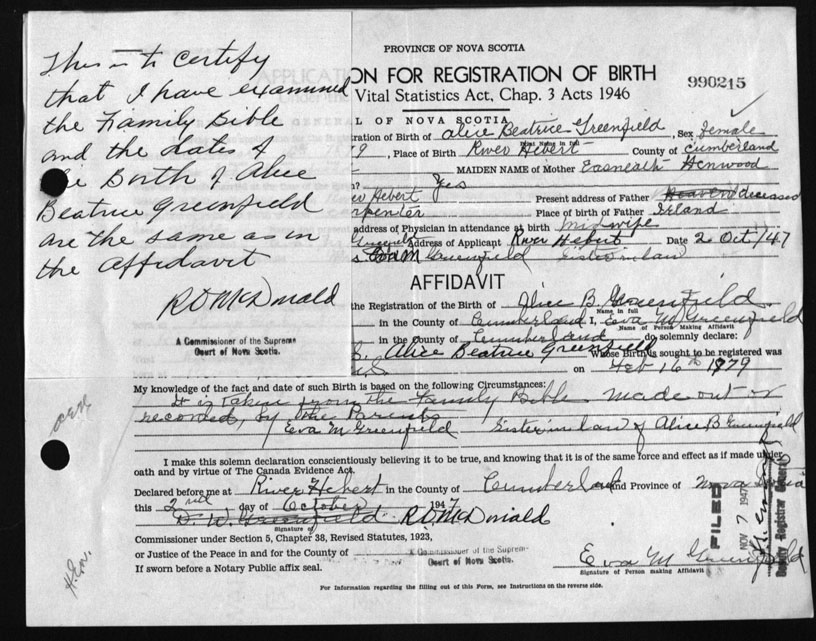 This is to certify
that I have examined
the Family Bible
and the dates of
the Birth of Alice
Beatrice Greenfield
are the same as in
the Affidavit
R D McDonald
A Commissioner of the Supreme
Court of Nova Scotia.
PROVINCE OF NOVA SCOTIA
ON FOR REGISTRATION OF BIRTH
990215
Vital Statistics Act, Chap. 3 Acts 1946
L OF NOVA SCOTIA
tration of Birth of Alice Beatrice Greenfield, Sex female
Print Name in full
9, Place of Birth River Hebert County of Cumberland
MAIDEN NAME of Mother Henwood
? Yes
er Hebert Present address of Father Heaven deceased
rpenter Place of birth of Father Ireland
address of Physician in attendance at birth midwife
Address of Applicant River Hebert Date 2 Oct/47
Eva M Greenfield Sister in law
AFFIDAVIT
the Registration of the Birth of Alice B. Greenfield
Name in full
in the County of Cumberland I, Eva M Greenfield
Name of Person Making Affidavit
in the County of Cumberland do solemnly declare:
Alice Beatrice Greenfield Whose Birth is sought to be registered was
on Feb 16th 1879
My knowledge of the fact and date of such Birth is based on the following Circumstances:
It is taken from the Family Bible made out or
recorded, by the Parents
Eva M Greenfield Sister in law of Alice B Greenfield
I make this solemn declaration conscientiously believing it to be true, and knowing that it is of the same force and effect as if made under
oath and by virtue of The Canada Evidence Act.
Declared before me at River Hebert in the County of Cumberland and Province of Nova Scotia
this 2nd, day of October 1947
D. W. Greenfield R D McDonald
Signature of
Commissioner under Section 5, Chapter 38, Revised Statutes, 1923,
or Justice of the Peace in and for the County of
A Commissioner of the Supreme
Court of Nova Scotia.
If sworn before a Notary Public affix seal.
Eva M Greenfield
Signature of Person making Affidavit
For Information regarding the filling out of this Form, see Instructions on the reverse side.
FILED
NOV 7 1947
Deputy Registrar General